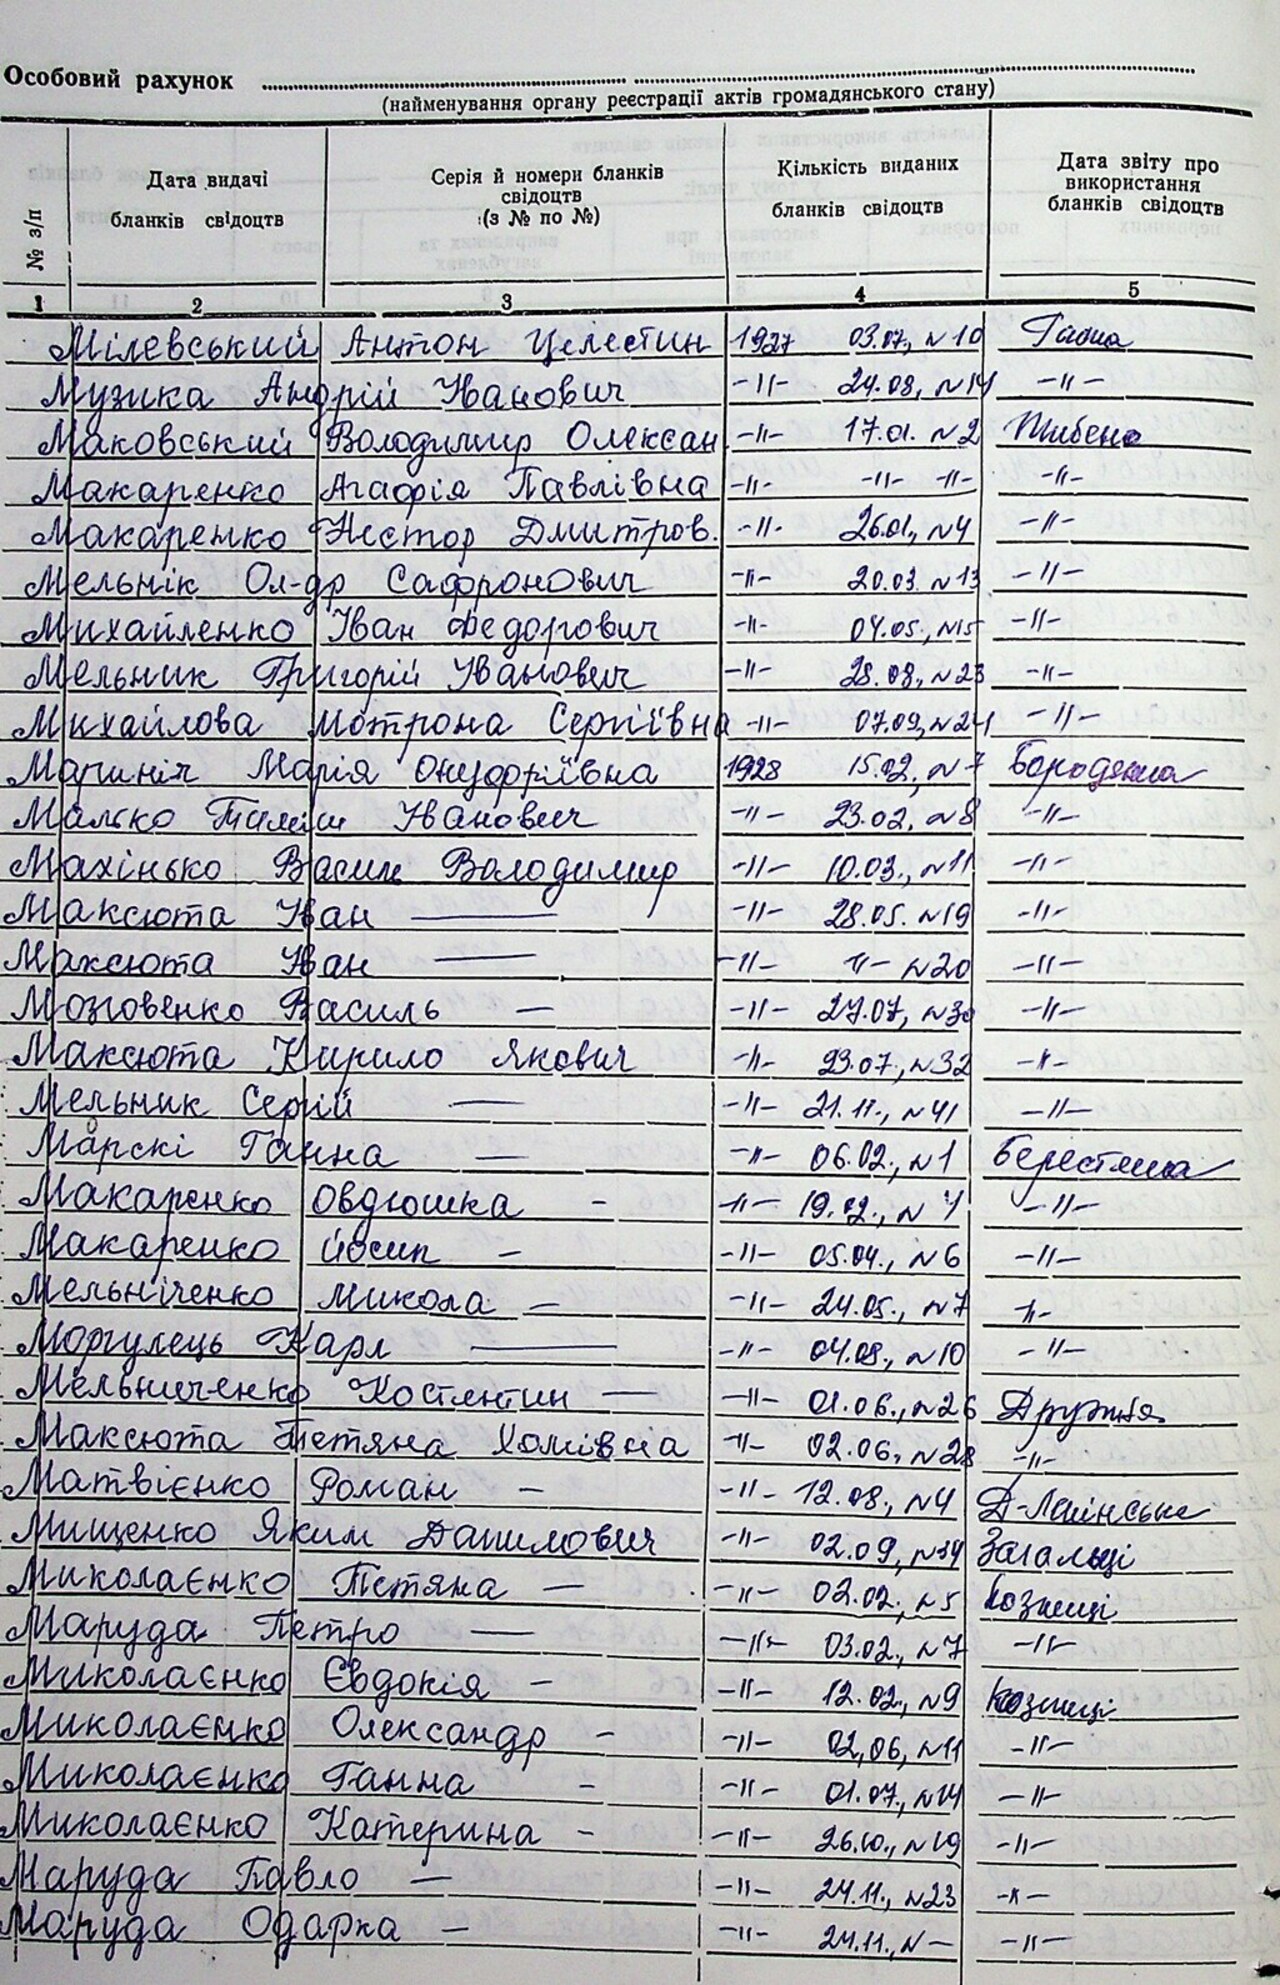 Особовий рахунок
(найменування органу реєстрації актів громадянського стану)
№ з/п Дата видачі бланків свідоцтв Серія й номери бланків свідоцтв (з № по №) Кількість виданих бланків свідоцтв Дата звіту про використання бланків свідоцтв
1 2 3 4 5
Мілевський Антон Целестин 1927 03.07, №10
Музика Андрій Іванович -"- 24.08, №14 -"-
Маковський Володимир Олексан -"- 17.01. №2
Макаренко Агафія Павлівна -"- -"- -"- -"-
Макаренко Нестор Дмитров. -"- 26.01, №4 -"-
Мельнік Ол-др Сафронович -"- 20.03. №13 -"-
Михайленко Іван Федорович -"- 04.05., №15 -"-
Мельник Григорій Іванович -"- 28.08, №23 -"-
Михайлова Мотрона Сергіївна -"- 07.09, №24 -"-
Мариніч Марія Онуфріївна 1928 15.02, №7 Бородянка
Малько Іванович -"- 23.02. №8 -"-
Махінько Василь Володимир -"- 10.03., №11 -"-
Максюта Іван — -"- 28.05. №19 -"-
Максюта Іван — -"- -"- №20 -"-
Мозговенко Василь — -"- 27.07, №30 -"-
Максюта Кирило Якович -"- 23.07., №32 -"-
Мельник Сергій — -"- 21.11., №41 -"-
Марскі Ганна — -"- 06.02., №1 Берестянка
Макаренко Овдюшка - -"- 19.02., № -"-
Макаренко Йосип - -"- 05.04., №6 -"-
Мельніченко Микола — -"- 24.05., №7 -"-
Моргулець Карл — -"- 04.08., №10 -"-
Мельниченко Костянтин — -"- 01.06., №26 Дружня
Максюта Тетяна Хомівна -"- 02.06, №28 -"-
Матвієнко Роман - -"- 12.08., №4
Мищенко Яким Данилович -"- 02.09, №34 Загальці
Миколаєнко Тетяна — -"- 02.02., №5 Козинці
Маруда Петро — -"- 03.02., №7 -"-
Миколаєнко Євдокія - -"- 12.02, №9 Козинці
Миколаєнко Олександр - -"- 02,06, №11 -"-
Миколаєнко Ганна - -"- 01.07, №14 -"-
Миколаєнко Катерина - -"- 26.10., №19 -"-
Маруда Павло — -"- 24.11., №23 -"-
Маруда Одарка - -"- 24.11., № — -"-